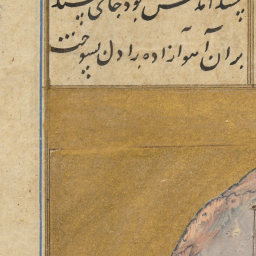 پسند آمدش بود جای پسند
بران آهو آزاده را دل بسوخت